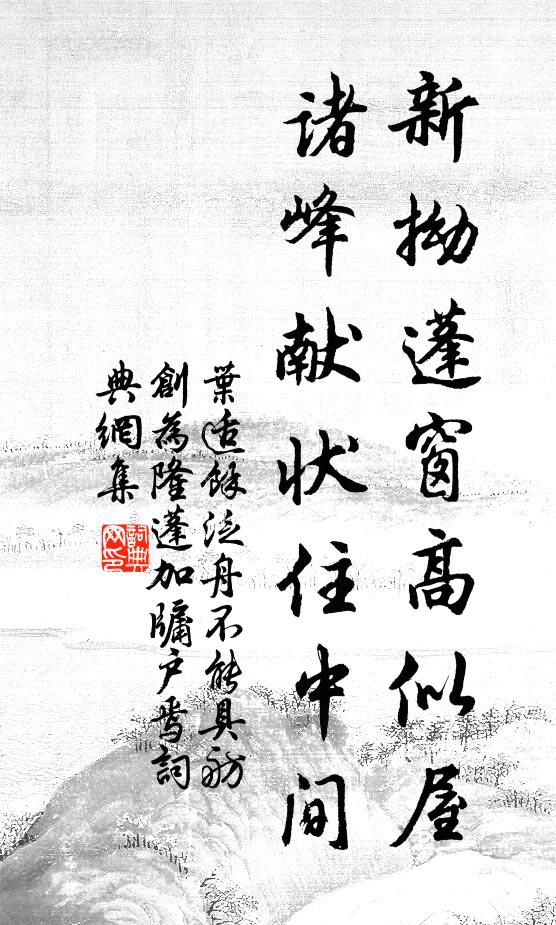 新拗蓬窗高似屋
诸峰献状住中间
葉适餘泛舟不能具舫
創為隆蓬加牖户焉詞
典網集
詞典網印